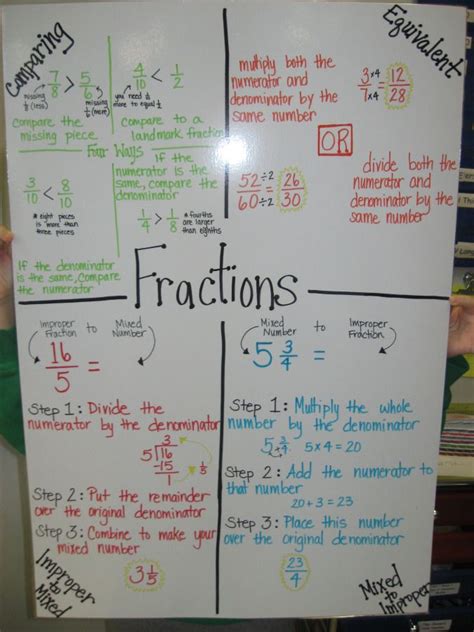 Comparing
7/8 > 5/6
missing 1/8 (less)
missing 1/6 (more)
Compare the
missing piece.
4/10 < 1/2
you need 5
more to equal 1/2
compare to a
landmark fraction
Four Ways
3/10 < 8/10
* eight pieces
is more than
three pieces
If the denominator
is the same, compare
the numerator
If the
numerator is the
same, compare the
denominator
1/4 > 1/8
* fourths
are larger
than eighths
Equivalent
multiply both the
numerator and
denominator by the
same number
3 x4 / 7 x4 = 12/28
OR
52 ÷2 / 60 ÷2 = 26/30
divide both the
numerator and
denominator by the
same number
Fractions
Improper Fraction to Mixed Number
16/5 =
Step 1: Divide the
numerator by the denominator
3
5 16
-15
1
1/5
Step 2: Put the remainder
over the original denominator
Step 3: Combine to make your
mixed number
3 1/5
Improper
to
Mixed
Mixed Number to Improper Fraction
5 3/4 =
Step 1: Multiply the whole
number by the denominator
5 3/4 5 x 4 = 20
Step 2: Add the numerator to
that number
20 + 3 = 23
Step 3: Place this number
over the original denominator
23/4
Mixed
to
Improper